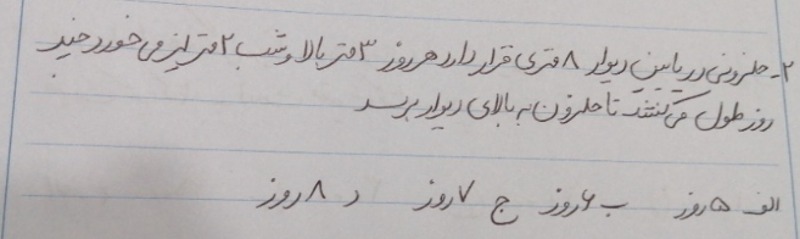 ۲- حلزونی در پایین دیوار ۸ متری قرار دارد هر روز ۳ متر بالا و شب ۲ متر لیز می خورد چند
روز طول می کشد تا حلزون به بالای دیوار برسد
الف ۵ روز ب ۶ روز ج ۷ روز د ۸ روز